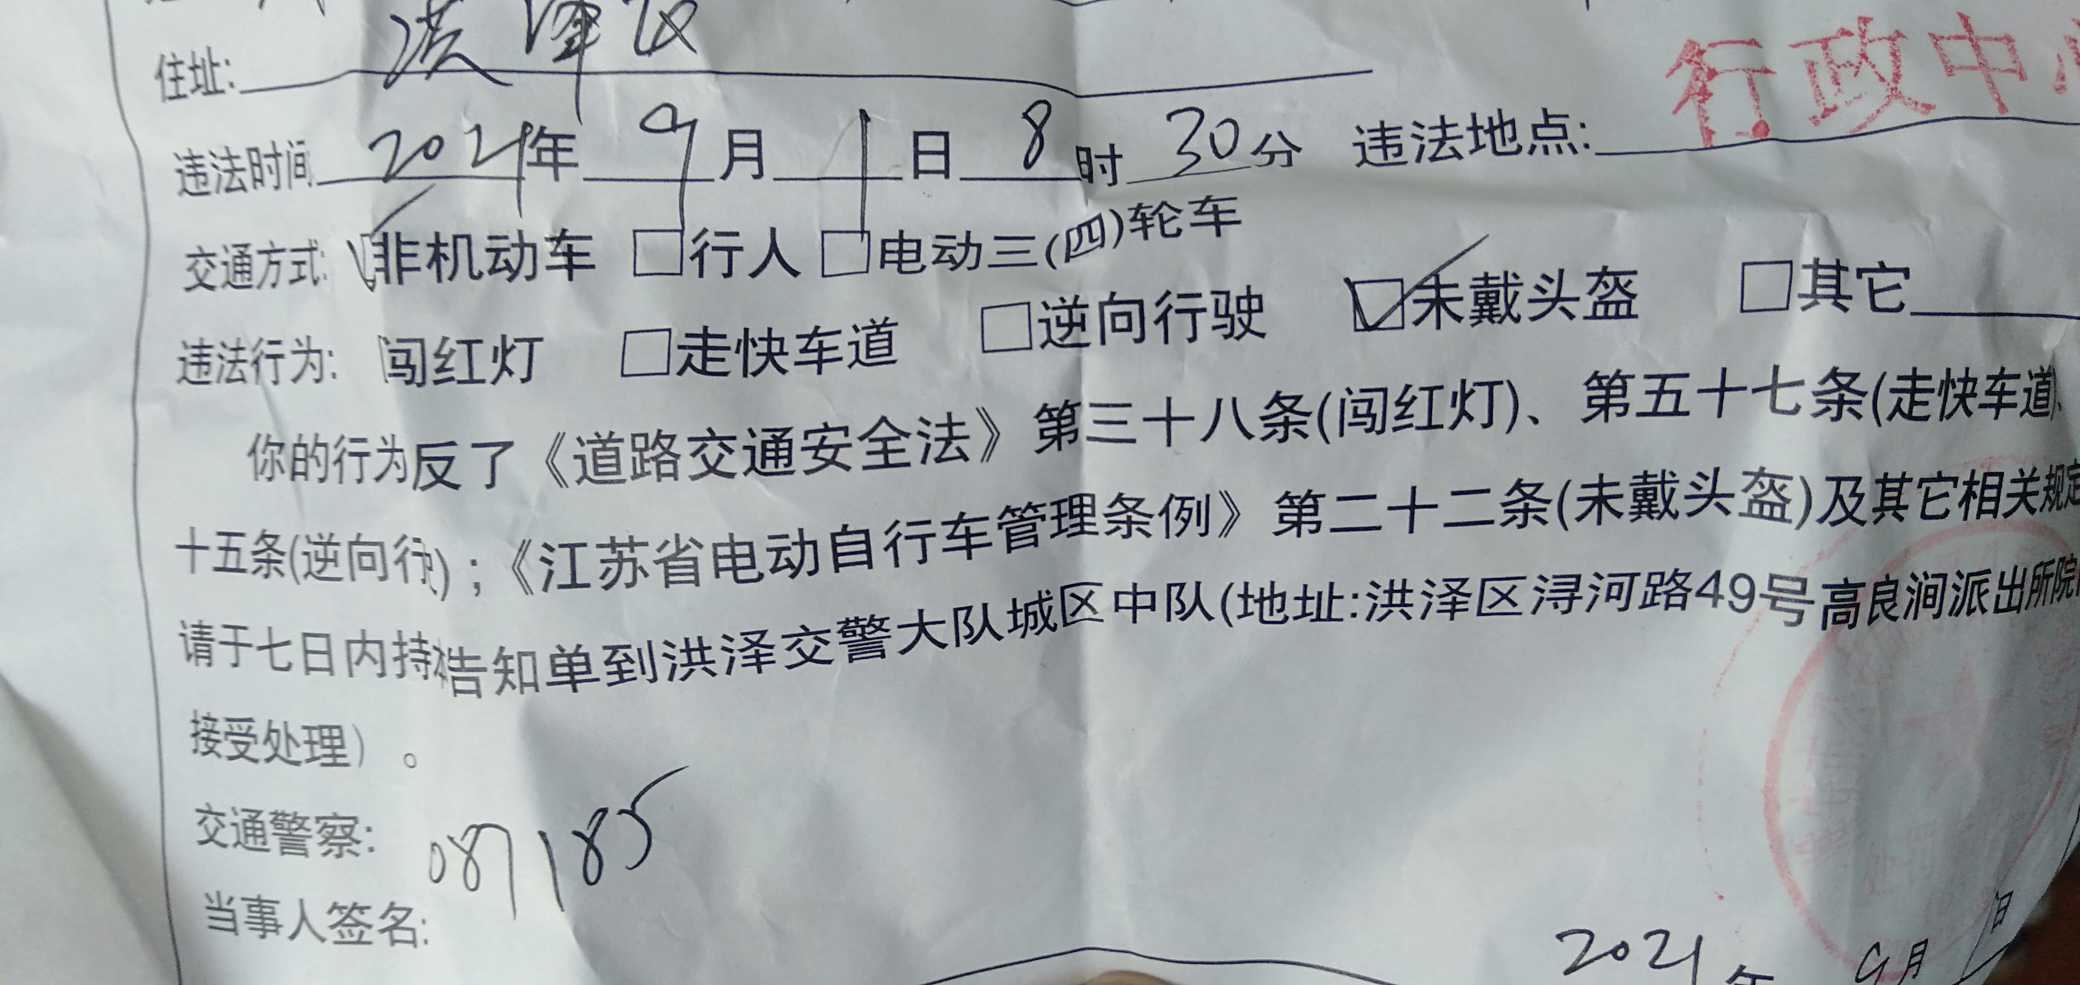 住址: 洪泽区
行政中
违法时间 2021年 9月 1日 8时 30分 违法地点:
交通方式: 非机动车 □行人 □电动三(四)轮车
违法行为: 闯红灯 □走快车道 □逆向行驶 ☑未戴头盔 □其它
你的行为反了《道路交通安全法》第三十八条(闯红灯)、第五十七条(走快车道)、
十五条(逆向行);《江苏省电动自行车管理条例》第二十二条(未戴头盔)及其它相关规定
请于七日内持本告知单到洪泽交警大队城区中队(地址:洪泽区浔河路49号高良涧派出所院
接受处理)。
交通警察: 087185
当事人签名:
2021年 9月 1日